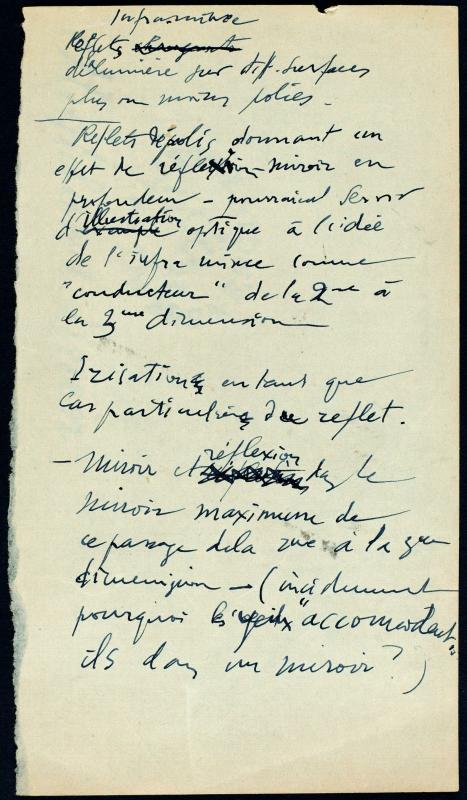 Inframince
Reflets
de lumière sur diff. surfaces
plus ou moins polies -
Reflets dépolis donnant un
effet de réflexion - miroir en
profondeur - pourraient servir
d'illustration optique à l'idée
de l'infra mince comme
"conducteur" de la 2me à
la 3ème dimension
Irisations en tant que
cas particuliers du reflet.
- Miroir et réflexion dans le
miroir maximum de
ce passage de la 2me à la 3me
dimension - (incidemment
pourquoi les yeux "accomodent"
ils dans un miroir? )